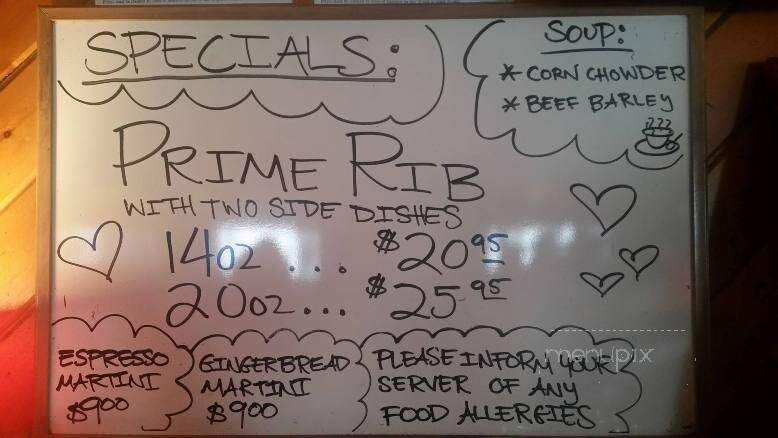 SPECIALS:
SOUP:
* CORN CHOWDER
* BEEF BARLEY
PRIME RIB
WITH TWO SIDE DISHES
14oz ... $20 95
20oz ... $25 95
ESPRESSO
MARTINI
$9 00
GINGERBREAD
MARTINI
$9 00
PLEASE INFORM YOUR
SERVER OF ANY
FOOD ALLERGIES
menupix